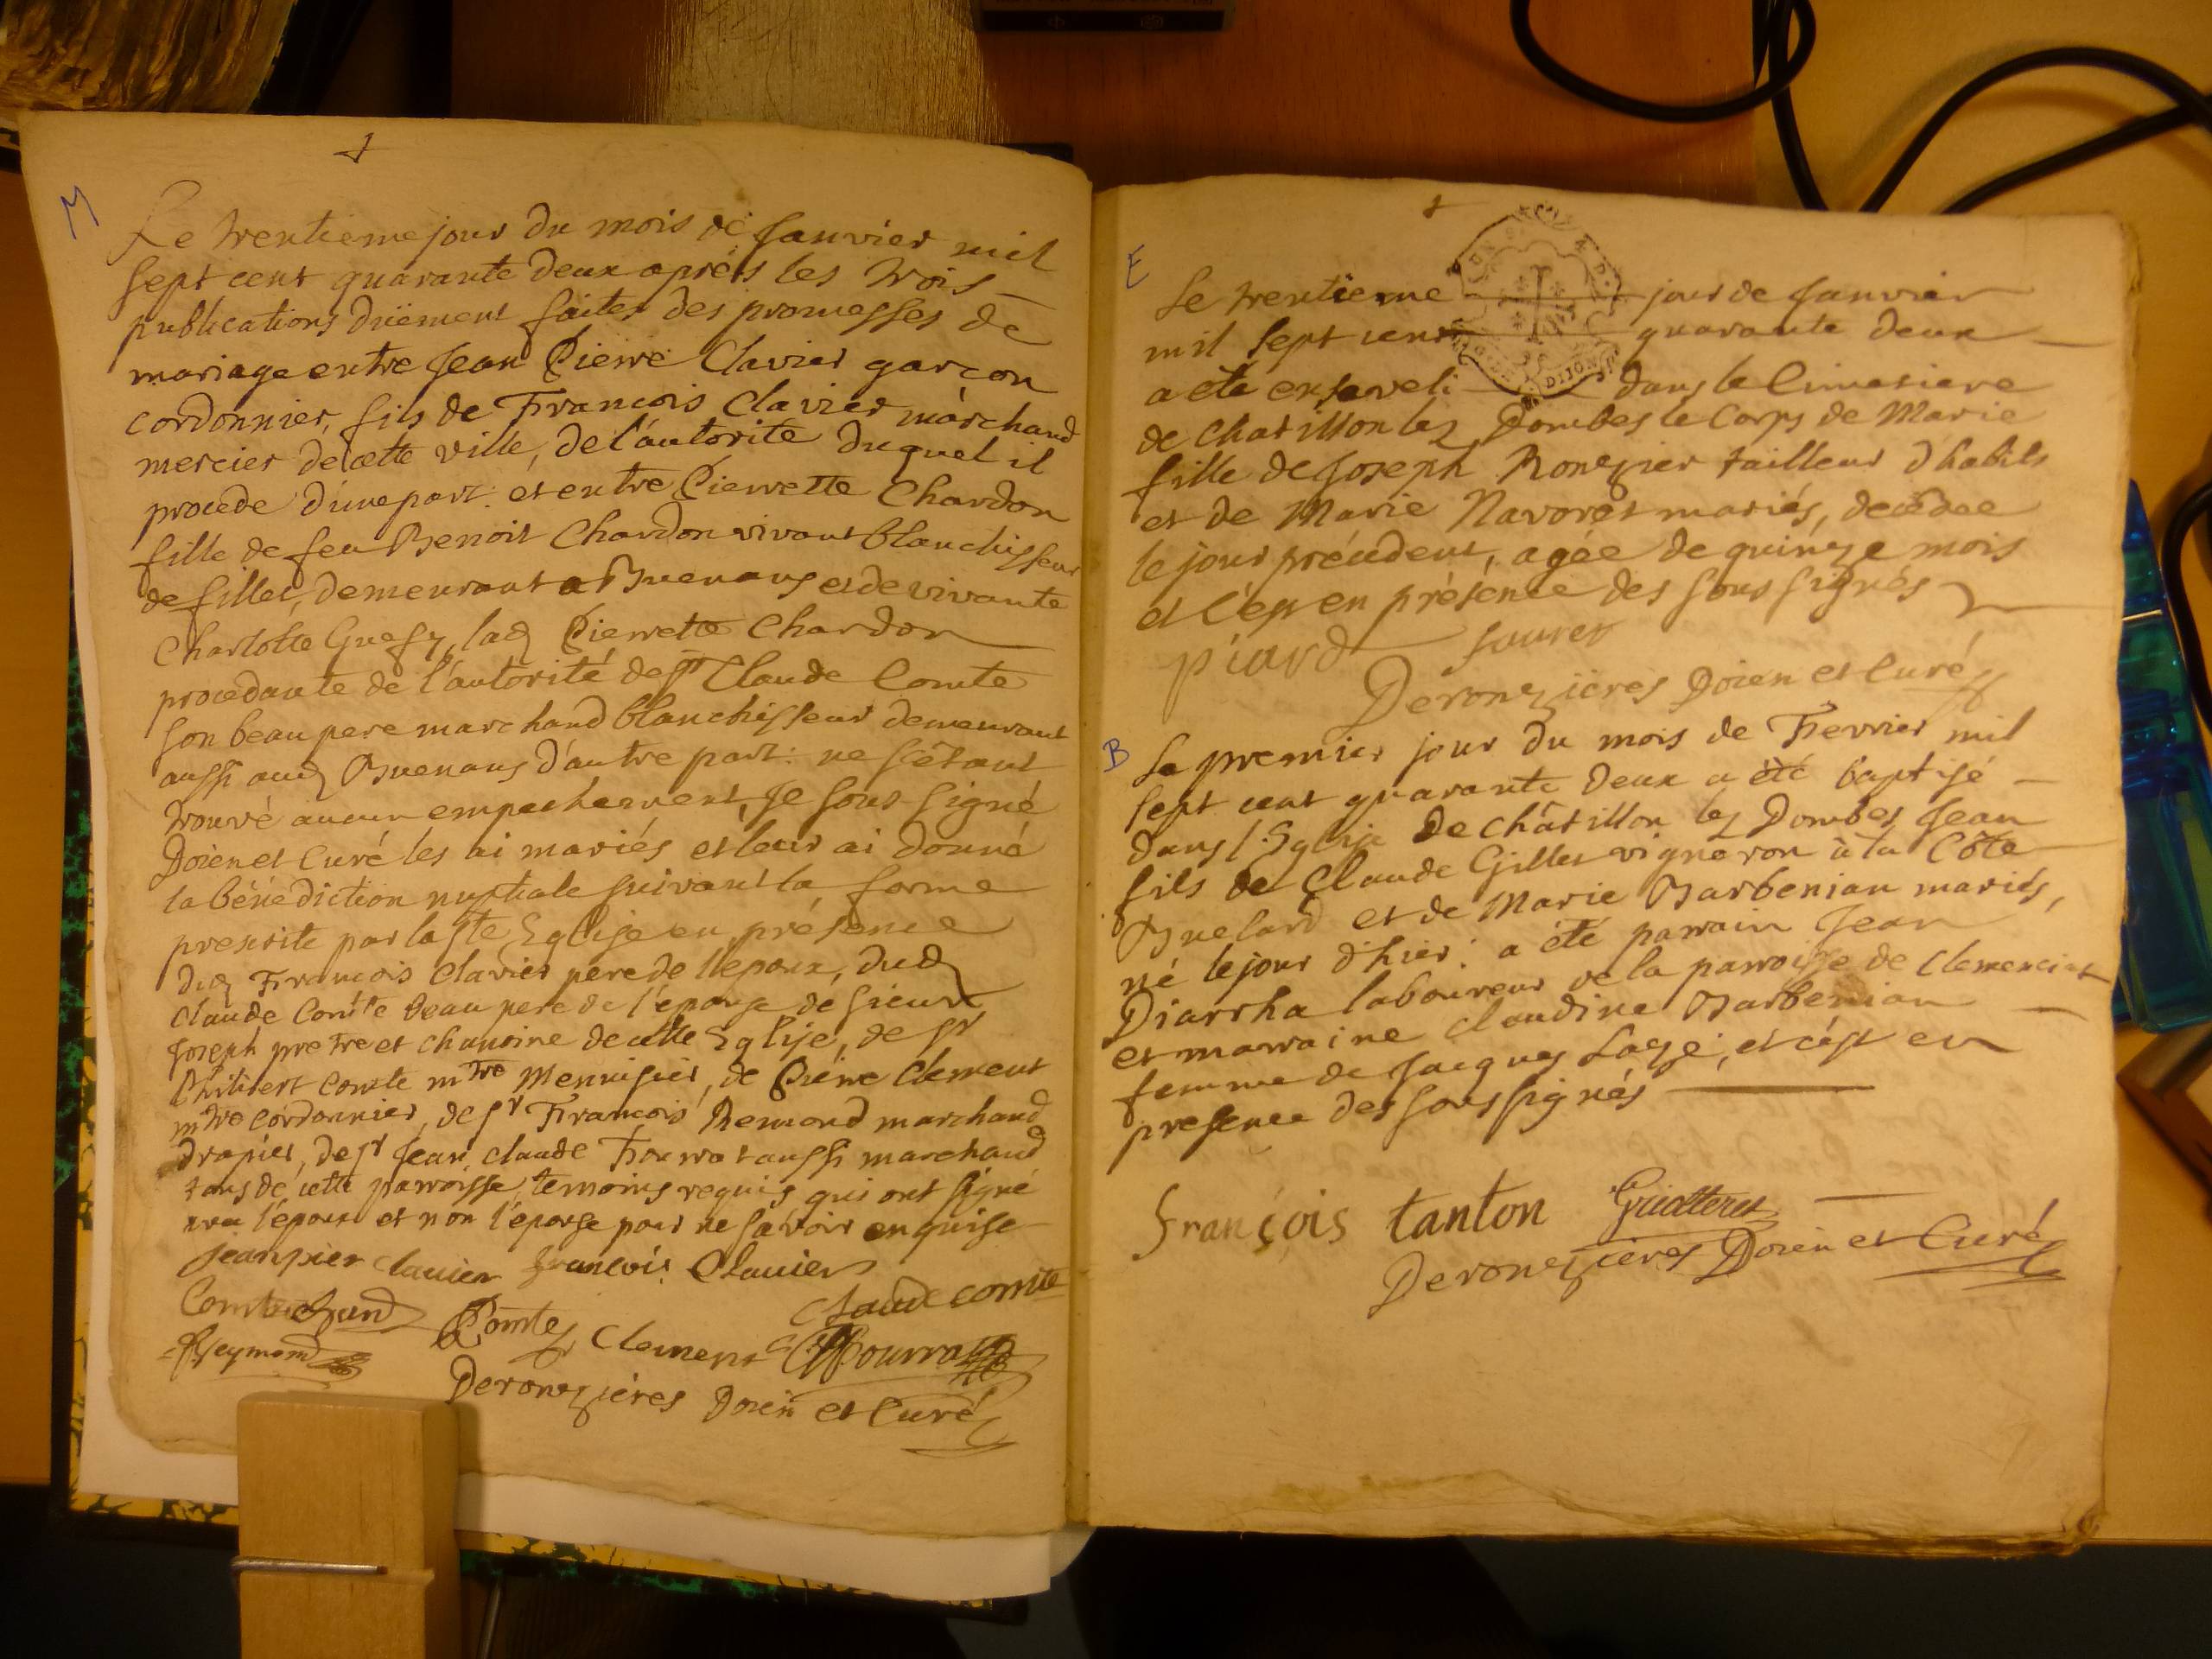 M
Le trentieme jour du mois de Janvier mil
sept cent quarante deux aprés les trois
publications düement faites des promesses de
mariage entre Jean Pierre Clavier garçon
cordonnier, fils de François Clavier marchand
mercier de cette ville, de l'autorite duquel il
procede d'une part: et entre Pierrette Chardon
fille de feu Benoit Chardon vivant blanchisseur
de filles, demeurant a Buenans et de vivante
Charlotte lad Pierrette Chardon
procedante de l'autorité de sr Claude Comte
son beau pere marchand blanchisseur demeurant
aussi aud Buenans d'autre part: ne s'étant
trouvé aucun empechement, Je sous signé
Doien et Curé les ai mariés et leur ai donné
la bénédiction nuptiale suivant la forme
prescrite par la ste Eglise en présence
dud François Clavier pere de l'epoux, dud
Claude Comte beau pere de l'epouse de sieur
Joseph pretre et chanoine de cette Eglise, de sr
Philibert Comte mtre Menuisier, de Pierre Clement
mtre cordonnier, de sr François Remond marchand
drapier, de sr Jean Claude aussi marchand
tous de cette parroisse temoins requis qui ont signé
l'epoux et non l'epouse pour ne savoir enquise
Jeanpier Clavier françois Clavier
Claude comte
Comte P Comte Clement
Reymond
Deronzières Doien et Curé
E
Le trentieme jour de Janvier
mil sept cent quarante deux
a été enseveli dans le Cimetiere
de Chatillon lez Dombes le Corps de Marie
fille de Joseph Ronzier tailleur d'habits
et de Marie Navoret mariés, decedee
le jour précedent, agée de quinze mois
et c'est en présence des sous signés
piard Jouret
Deronzières Doien et Curé
DIJON
B
Le premier jour du mois de Fevrier mil
sept cent quarante deux a été baptisé
dans l'Eglise De châtillon lez Dombes Jean
fils de Claude Gilles vigneron à la Côte
Buelard et de Marie Barbenian mariés,
né le jour d'hier: a été parrain Jean
Diarrha laboureur de la parroisse de Clemenciat
et marraine Claudine Barbenian
femme de Jacques Lagé, et c'est en
presence des sous signés
françois tanton
Deronzières Doien et Curé